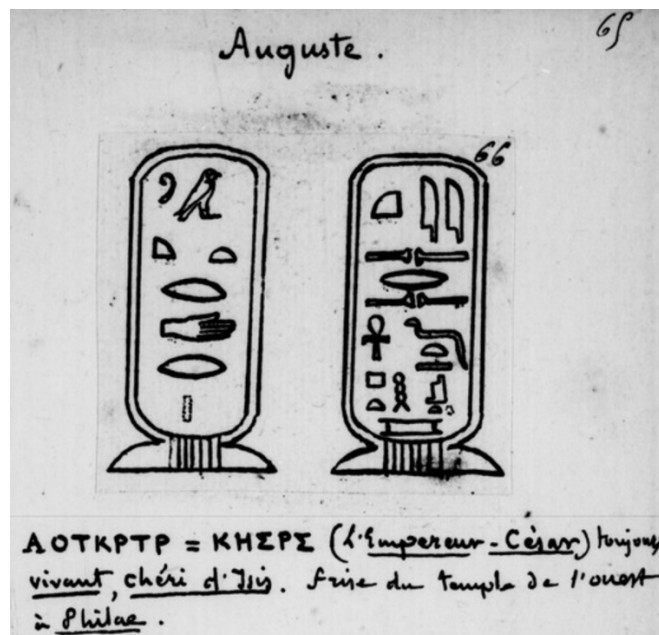 65
Auguste.
66
ΑΟΤΚΡΤΡ = ΚΗΣΡΣ (L'Empereur-César) toujours
vivant, chéri d'Isis. Frise du temple de l'ouest
à Philae.